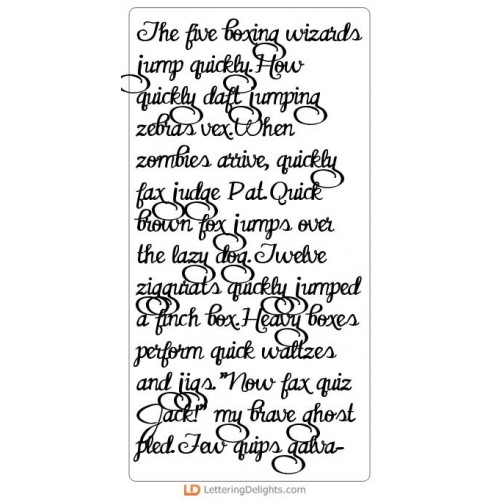 The five boxing wizards
jump quickly. How
quickly daft jumping
zebras vex. When
zombies arrive, quickly
fax judge Pat. Quick
brown fox jumps over
the lazy dog. Twelve
ziggurats quickly jumped
a finch box. Heavy boxes
perform quick waltzes
and jigs. "Now fax quiz
Jack!" my brave ghost
pled. Few quips galva-
LD LetteringDelights.com